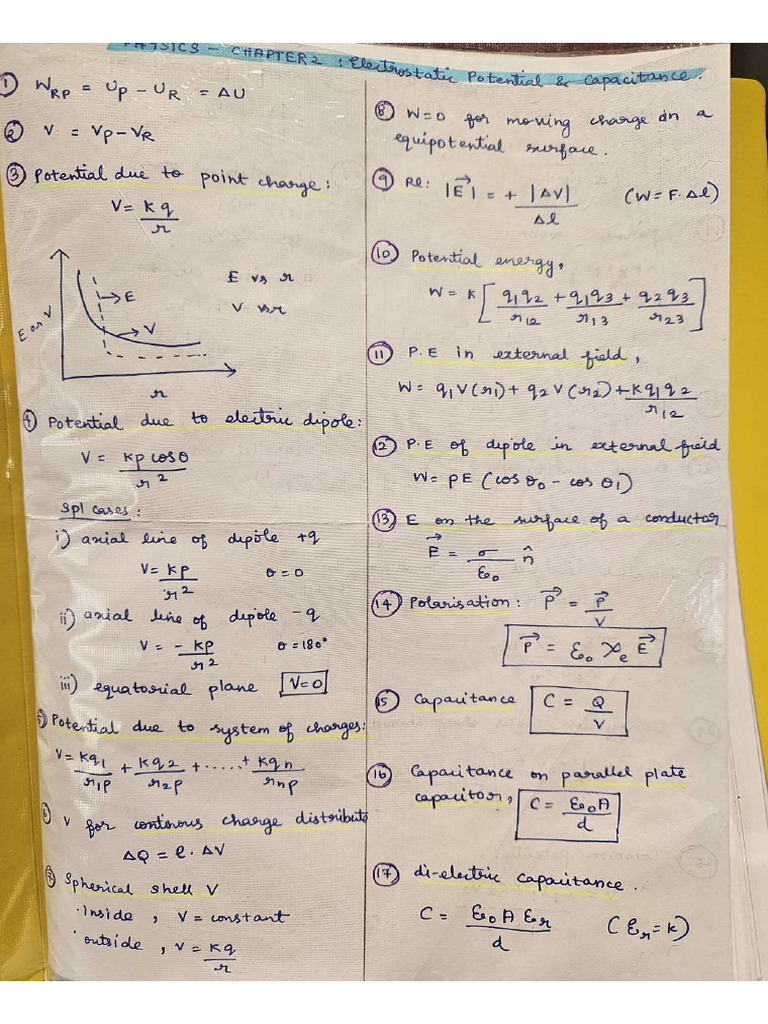 PHYSICS - CHAPTER 2 : Electrostatic Potential & Capacitance.
① W_RP = U_P - U_R = ΔU
② V = V_P - V_R
③ Potential due to point charge:
V = Kq/r
E or V
→E
→V
r
E vs r
V vs r
④ Potential due to electric dipole:
V = kp cosθ/r²
Spl cases:
i) axial line of dipole +q
V = KP/r² θ = 0
ii) axial line of dipole -q
V = -KP/r² θ = 180°
iii) equatorial plane V=0
⑤ Potential due to system of charges:
V = Kq₁/r₁p + Kq₂/r₂p + ..... + Kqn/rnp
⑥ V for continous charge distribute
ΔQ = ρ. ΔV
⑦ Spherical shell V
· Inside, V = constant
· outside, V = Kq/r
⑧ W=0 for moving charge on a
equipotential surface.
⑨ Re: |E⃗| = + |ΔV|/Δl (W = F. Δl)
⑩ Potential energy,
W = K [q₁q₂/r₁₂ + q₁q₃/r₁₃ + q₂q₃/r₂₃]
⑪ P.E in external field,
W = q₁V(r₁) + q₂V(r₂) + Kq₁q₂/r₁₂
⑫ P.E of dipole in external field
W = PE (cos θ₀ - cos θ₁)
⑬ E on the surface of a conductor
E⃗ = σ/ε₀ n̂
⑭ Polarisation: P⃗ = P⃗/V
P⃗ = ε₀ χₑ E⃗
⑮ Capacitance C = Q/V
⑯ Capacitance on parallel plate
capacitor, C = ε₀A/d
⑰ di-electric capacitance.
C = ε₀A εr/d (εr = K)